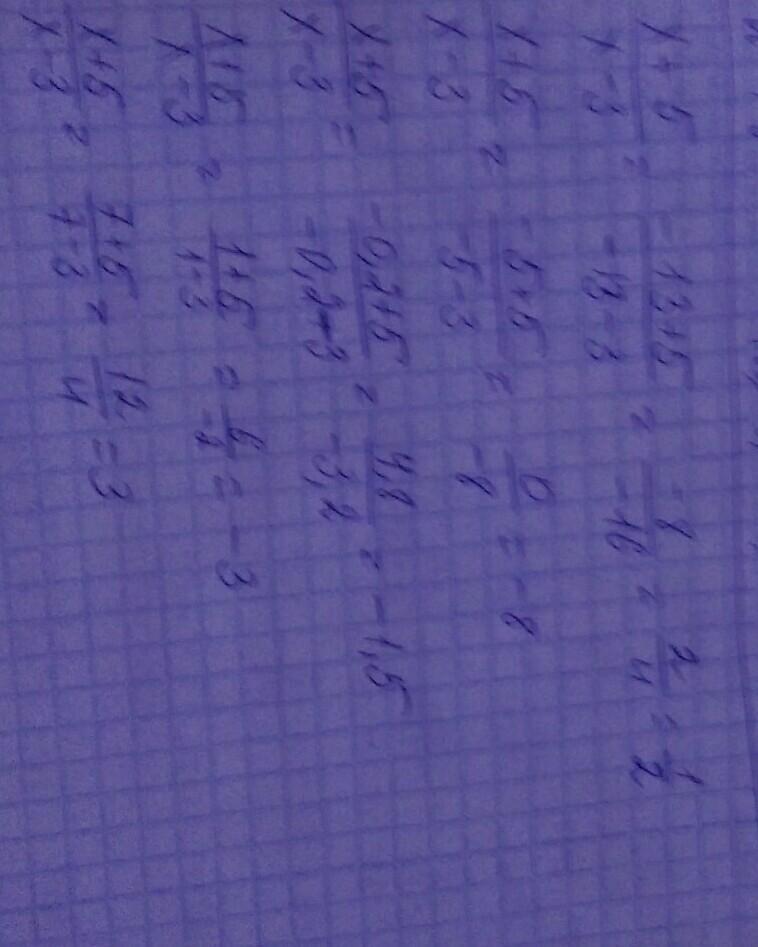 x+5/x-3 = -13+5/-13-3 = -8/-16 = 2/4 = 1/2
x+5/x-3 = -5+5/-5-3 = 0/-8 = -8
x+5/x-3 = -0,2+5/-0,2-3 = 4,8/-3,2 = -1,5
x+5/x-3 = 1+5/1-3 = 6/-2 = -3
x+5/x-3 = 7+5/7-3 = 12/4 = 3